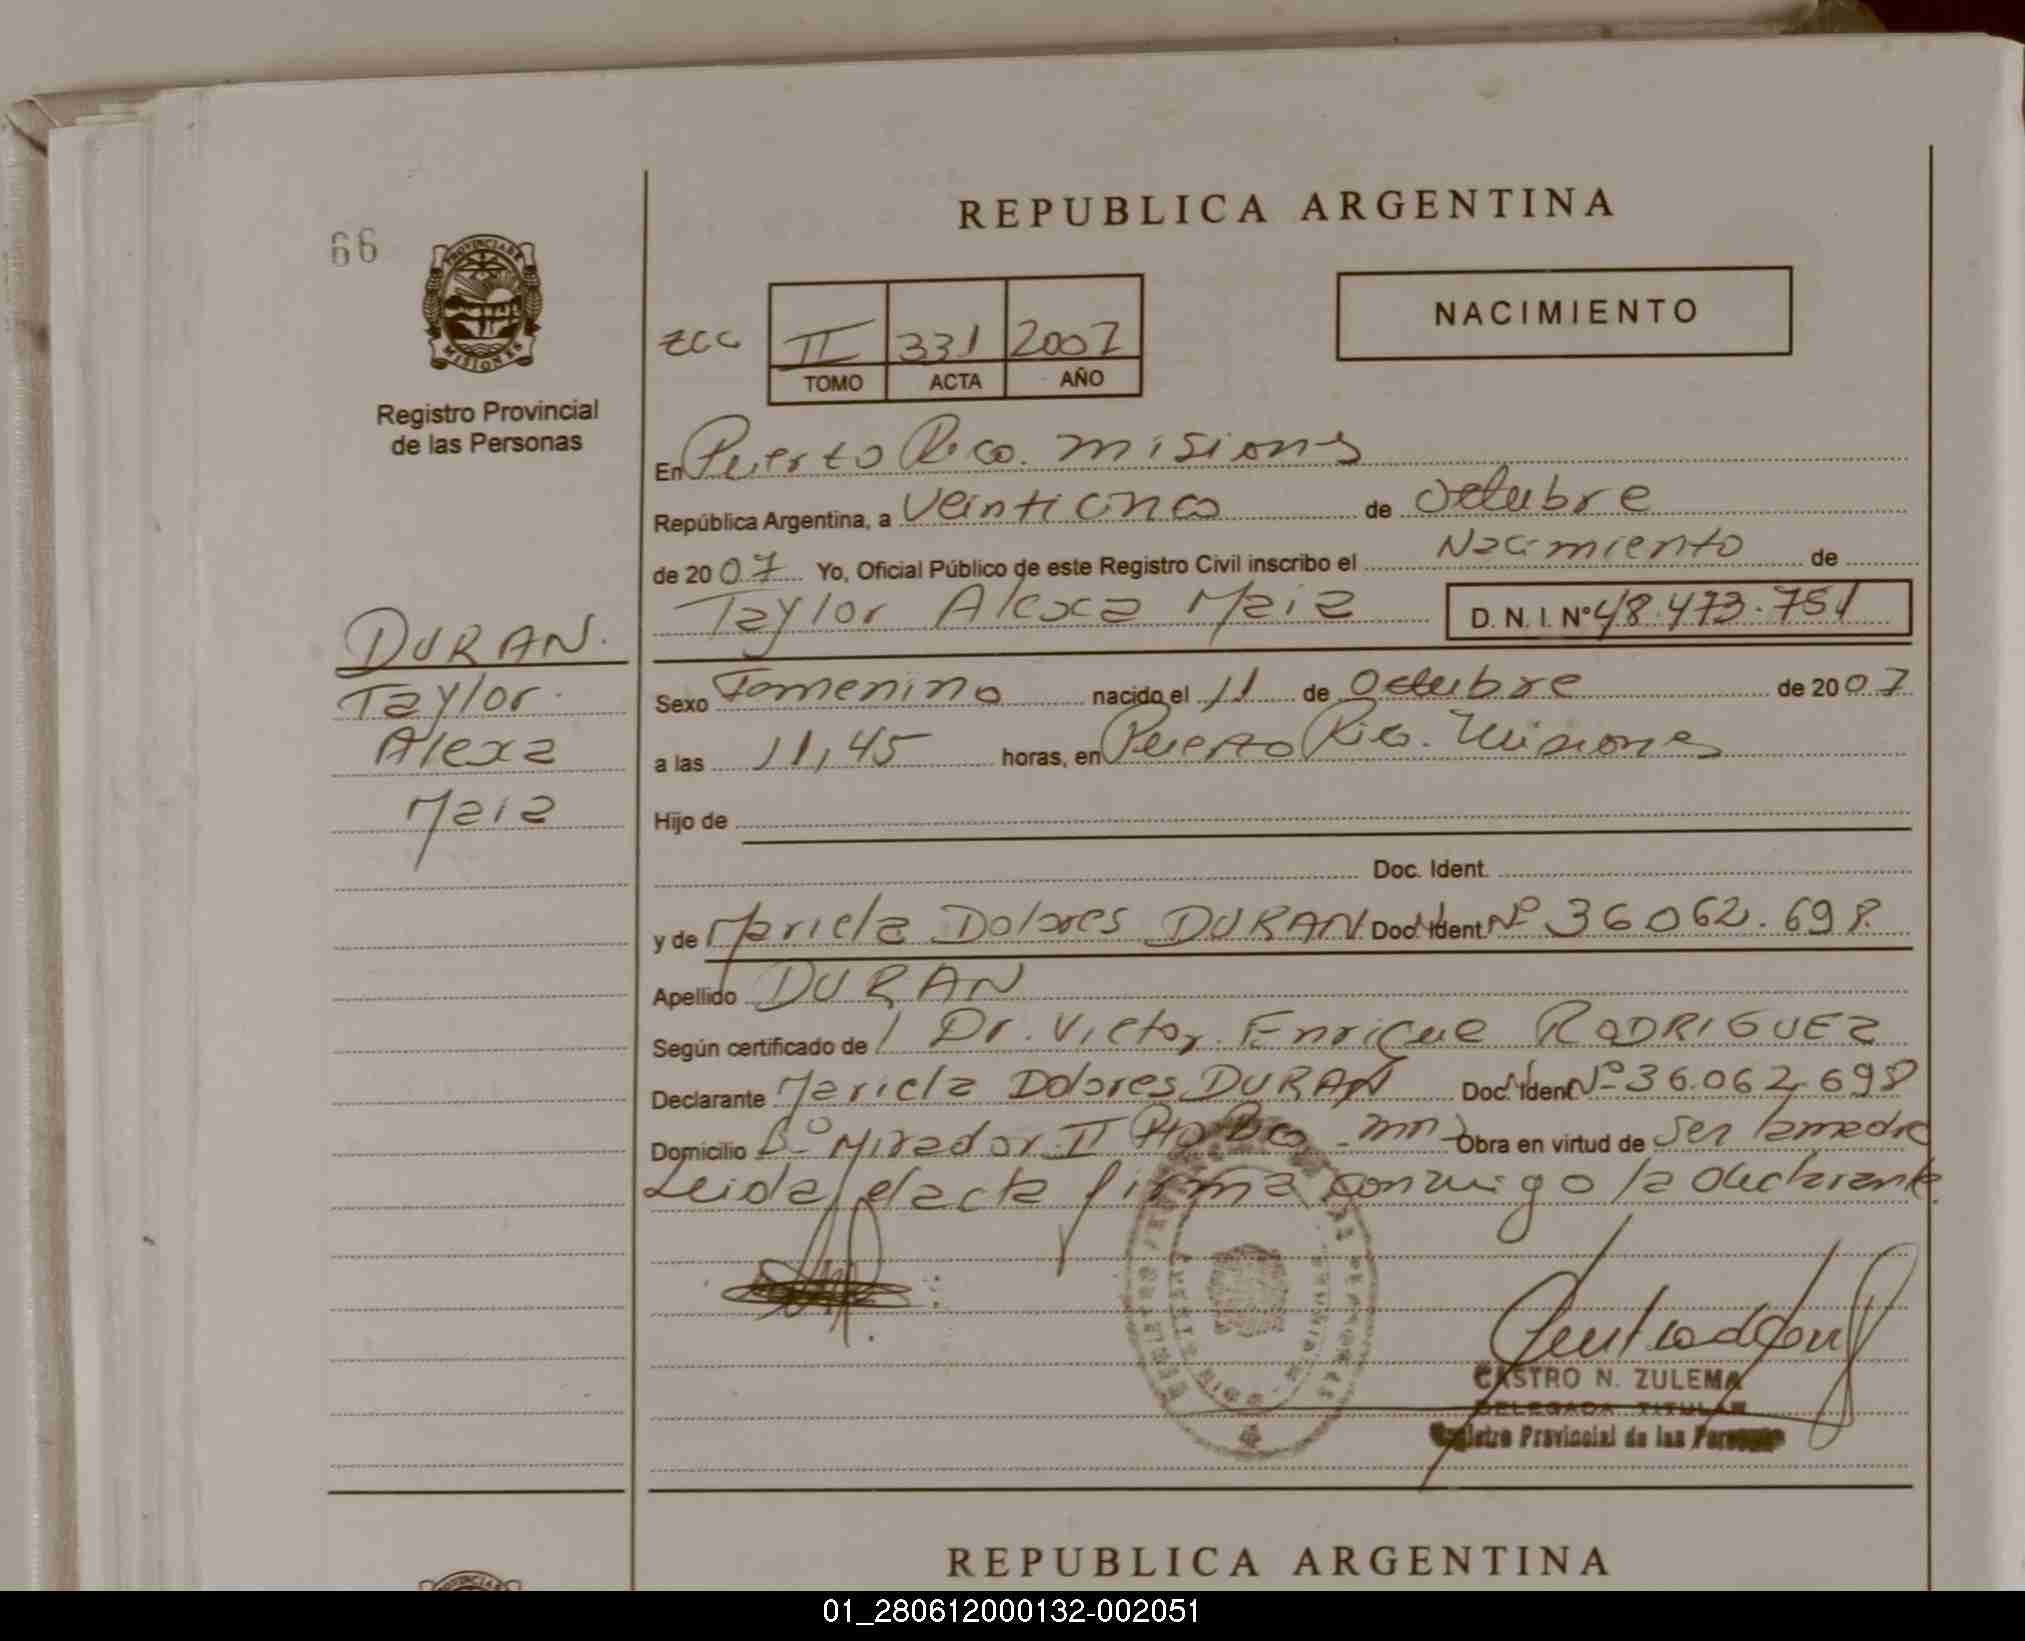 REPUBLICA ARGENTINA
66
PROVINCIA DE
MISIONES
NACIMIENTO
II 331 2007
TOMO ACTA AÑO
Registro Provincial
de las Personas
En Puerto Rico. Misiones
República Argentina, a Veinticinco de Octubre
de 2007 Yo, Oficial Público de este Registro Civil inscribo el Nacimiento de
Taylor Alexa Maia D. N. I. Nº 48.473.751
DURAN.
Taylor
Alexa
Maia
Sexo Femenino nacido el 11 de Octubre de 2007
a las 11,45 horas, en Puerto Rico. Misiones
Hijo de
Doc. Ident.
y de Mariela Dolores DURAN Doc. Ident. Nº 36062.698
Apellido DURAN
Según certificado de Dr. Victor Enrique RODRIGUEZ
Declarante Mariela Dolores DURAN Doc. Ident. Nº 36.062.698
Domicilio Bº Mirador II Pto Rico Mnes Obra en virtud de ser la madre
Leida el acta firma conmigo la declarante
CASTRO N. ZULEMA
DELEGADA TITULAR
Registro Provincial de las Personas
REPUBLICA ARGENTINA
01_280612000132-002051